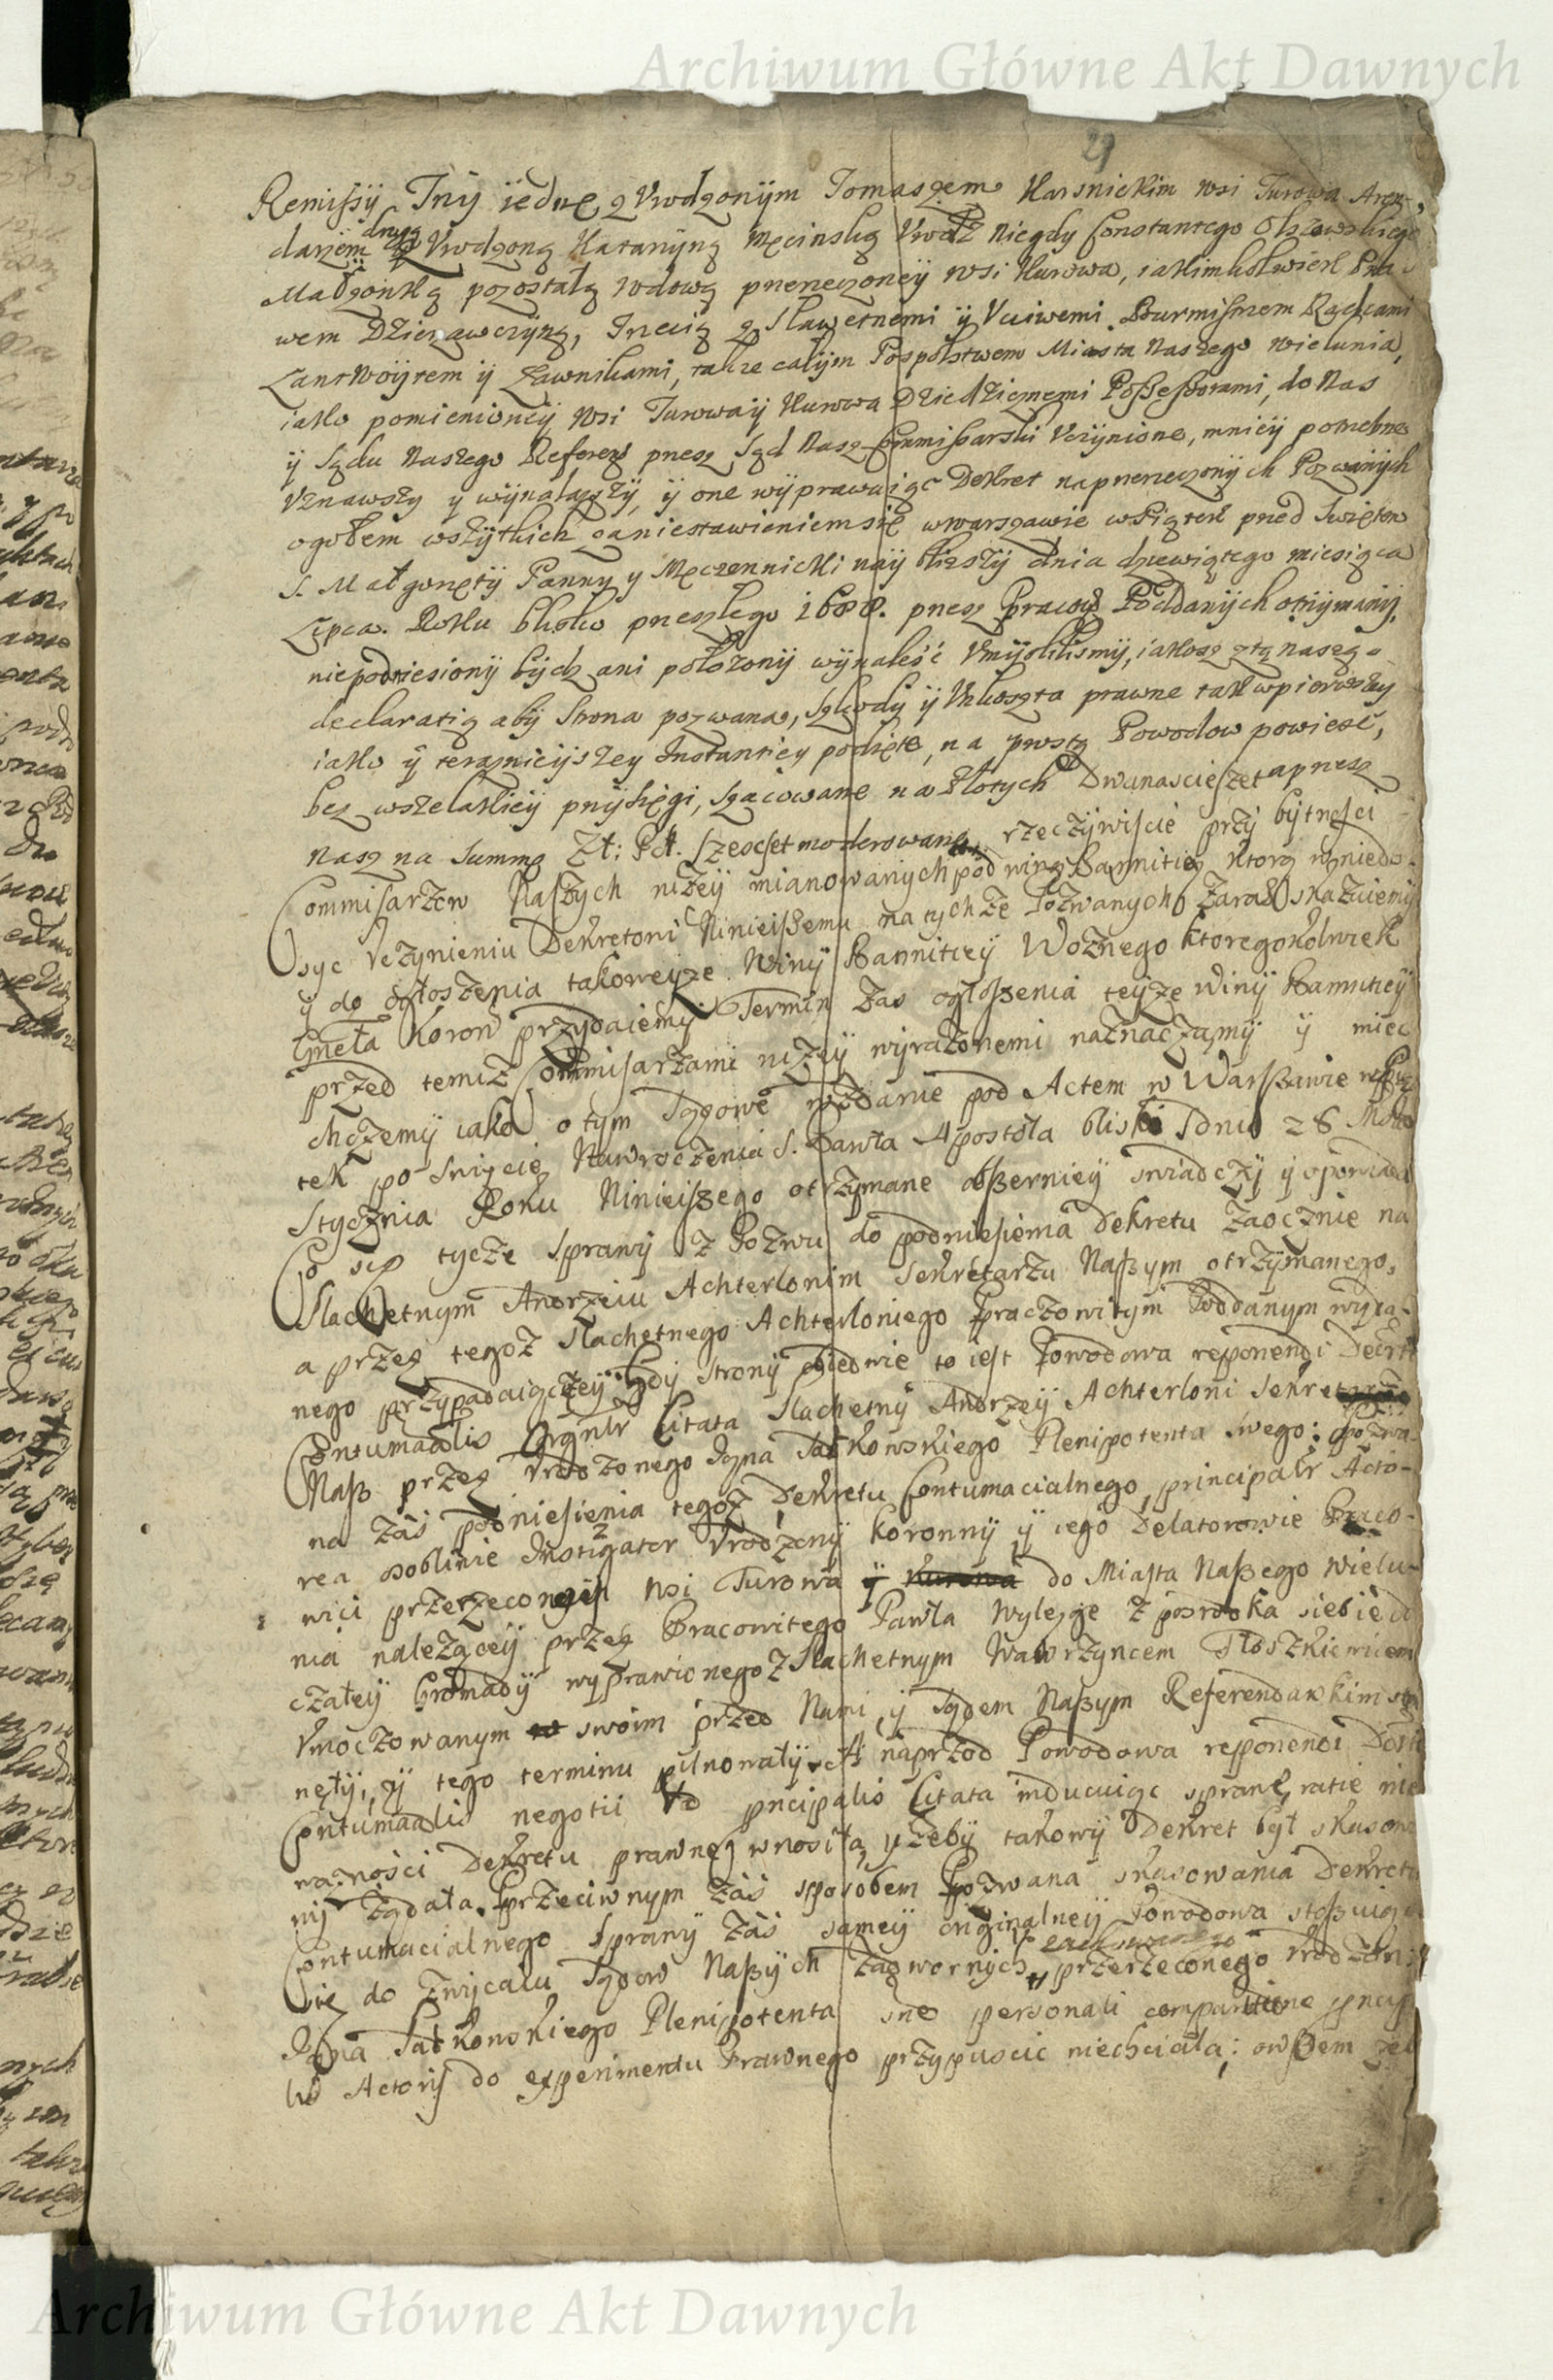 Archiwum Główne Akt Dawnych
29
Remissÿ Trÿ iednę z Vrodzonÿm Tomaszem Karsnickim wsi Turowa Aren-
darzem drugą z Vrodzoną Katarÿną Męcinską Vrodz niegdy Constantego Olszowskiego
Małzonką pozostałą wdową przerzeczoneÿ wsi Kurowa, iakimkolwiek Pra-
wem Dzierzawczÿną, Trzecią z Sławetnemi ÿ Vcciwemi Burmistrzem Raÿcami
Lantwoÿtem ÿ Ławnikami, także całÿm Pospolstwem Miasta Naszego Wielunia,
iako pomienioneÿ Wsi Turowa ÿ Kurowa Dziedzicznemi Possessorami, do Nas
ÿ Sądu Naszego Referen przez Sąd Nasz Commissarski Vczÿnione, mnieÿ potrzebne
Vznawszy y wÿnalazszÿ, ÿ one wÿprawuiąc Dekret na przerzeczonÿch Pozwanÿch
ogołem wszÿtkich za niestawieniem się w Warszawie w Piątek przed Swiętem
S. Małgorzętÿ Panny y Męczennicki naÿ bliszÿ dnia dziewiątego miesiąca
Lipca. Roku blisko przeszłego 1688. przez Pracow Poddanÿch otrzÿmanÿ,
niepodniesionÿ bÿdz ani położonÿ wÿnaleść Vmÿslilismÿ, iakosz z tą naszą
declaratią abÿ Strona pozwana, szkodÿ ÿ Vkoszta prawne tak w pierwszey
iako ÿ terazniejszey Instantiey podięte, na prostą Powodow powieść,
bez wszelakieÿ przÿsięgi, szacowane na złotych Dwanascie set a przez
nasz na Summą Zł: Pol. szescset moderowane, rzeczÿwiscie przÿ bÿtnosci
Commisarzow Naszych nizeÿ mianowanych pod winą Bannitieÿ ktorą w niedo-
syc Vczynieniu Dekretowi Ninieiszemu na tychze Pozwanych zaraz skazuiemÿ
ÿ do ogłoszenia takoweÿze Winÿ Bannitieÿ Woznego ktoregokolwiek
Gnełła Koron przydaiemÿ Termin zas ogłoszenia teÿze Winÿ Bannitieÿ
przed temiz Commisarzami nizeÿ wÿrazonemi naznaczamÿ ÿ miec
chczemÿ iako o tym Sądowe wzdanie pod Actem w Warszawie w Pią-
tek po Swięcie Nawroczenia S. Pawła Apostoła bliski dnia 28 Mca
Stycznia Roku Ninieiszego otrzymane obszernieÿ swiadczÿ ÿ opowiada
Co się tycze Sprawÿ z Pozwu do podniesienia Dekretu zaocznie na
Slachetnym Andrzeiu Achterlonim Sekretarzu Naszym otrzÿmanego,
a przez tegoz Slachetnego Achterloniego Praczowitym Poddanym wyda-
nego przÿpadaiączeÿ: Gdÿ stronÿ obiedwie to iest Powodowa reponendi Decrti
Contumacialis Orgnlr Citata Slachetnÿ Andrzeÿ Achterloni Sekretarz
Nasz przez Vrodzonego Jana Satkowskiego Plenipotenta swego: Pozwa-
na zas podniesienia tegoz Dekretu Contumacialnego principalr Acto-
rea osoblinie Instigator Vrodzony Koronnÿ ÿ iego Delatorowie Praco-
wici przerzeczoneÿ Wsi Turowa do Miasta Naszego Wielu-
nia nalezączeÿ przez Pracowitego Pawła Wylezge z posrodka siebie ÿ
czałeÿ Gromadÿ wyprawionego z Slachetnym Wawrzyncem Tłoszkiewicem
Vmoczowanym swoim przed Nami, ÿ Sądem Naszym Referendarskim sta-
nęłÿ, ÿ tego terminu pilnowałÿ. A naprzod Powodowa reponendi Dcrti
Contumacialis negotii vo prncipalis Citata inducuiąc sprawę, ratie nie
waznosci Dekretu prawney wnosiła, y zebÿ takowÿ Dekret był skasowa
nÿ ządała. Przeciwnym zas sposobem Pozwana skasowania Dekretu
Contumacialnego Sprawÿ zas sameÿ originalneÿ Powodowa stosuiąc
się do zwÿczaiu Sądow Naszÿch zadwornÿch, przerzeconego Vrodzon:
Jana Satkowskiego Plenipotenta sne personali comparitione pncip
lis Actoris do experimentu Prawnego przypuscic niechciała; owszem zeb
Archiwum Główne Akt Dawnych